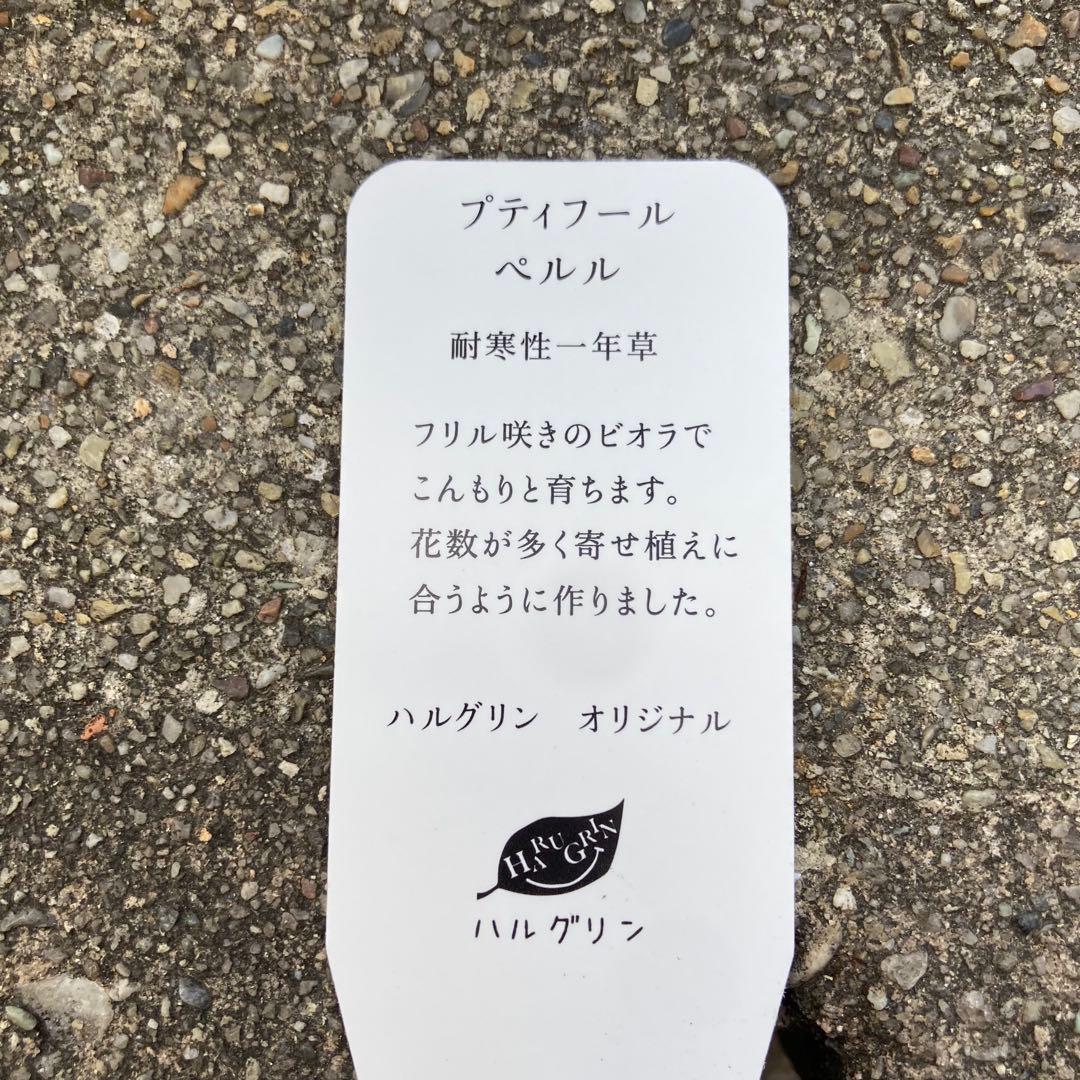 プティフール
ペルル
耐寒性一年草
フリル咲きのビオラで
こんもりと育ちます。
花数が多く寄せ植えに
合うように作りました。
ハルグリン　オリジナル
HARU GRIN
ハルグリン